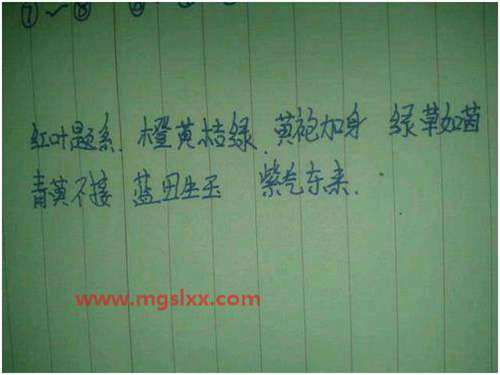 ⑦ ~ ⑧
红叶题系. 橙黄桔绿. 黄袍加身 绿草如茵
青黄不接 蓝田生玉 紫气东来.
www.mgslxx.com